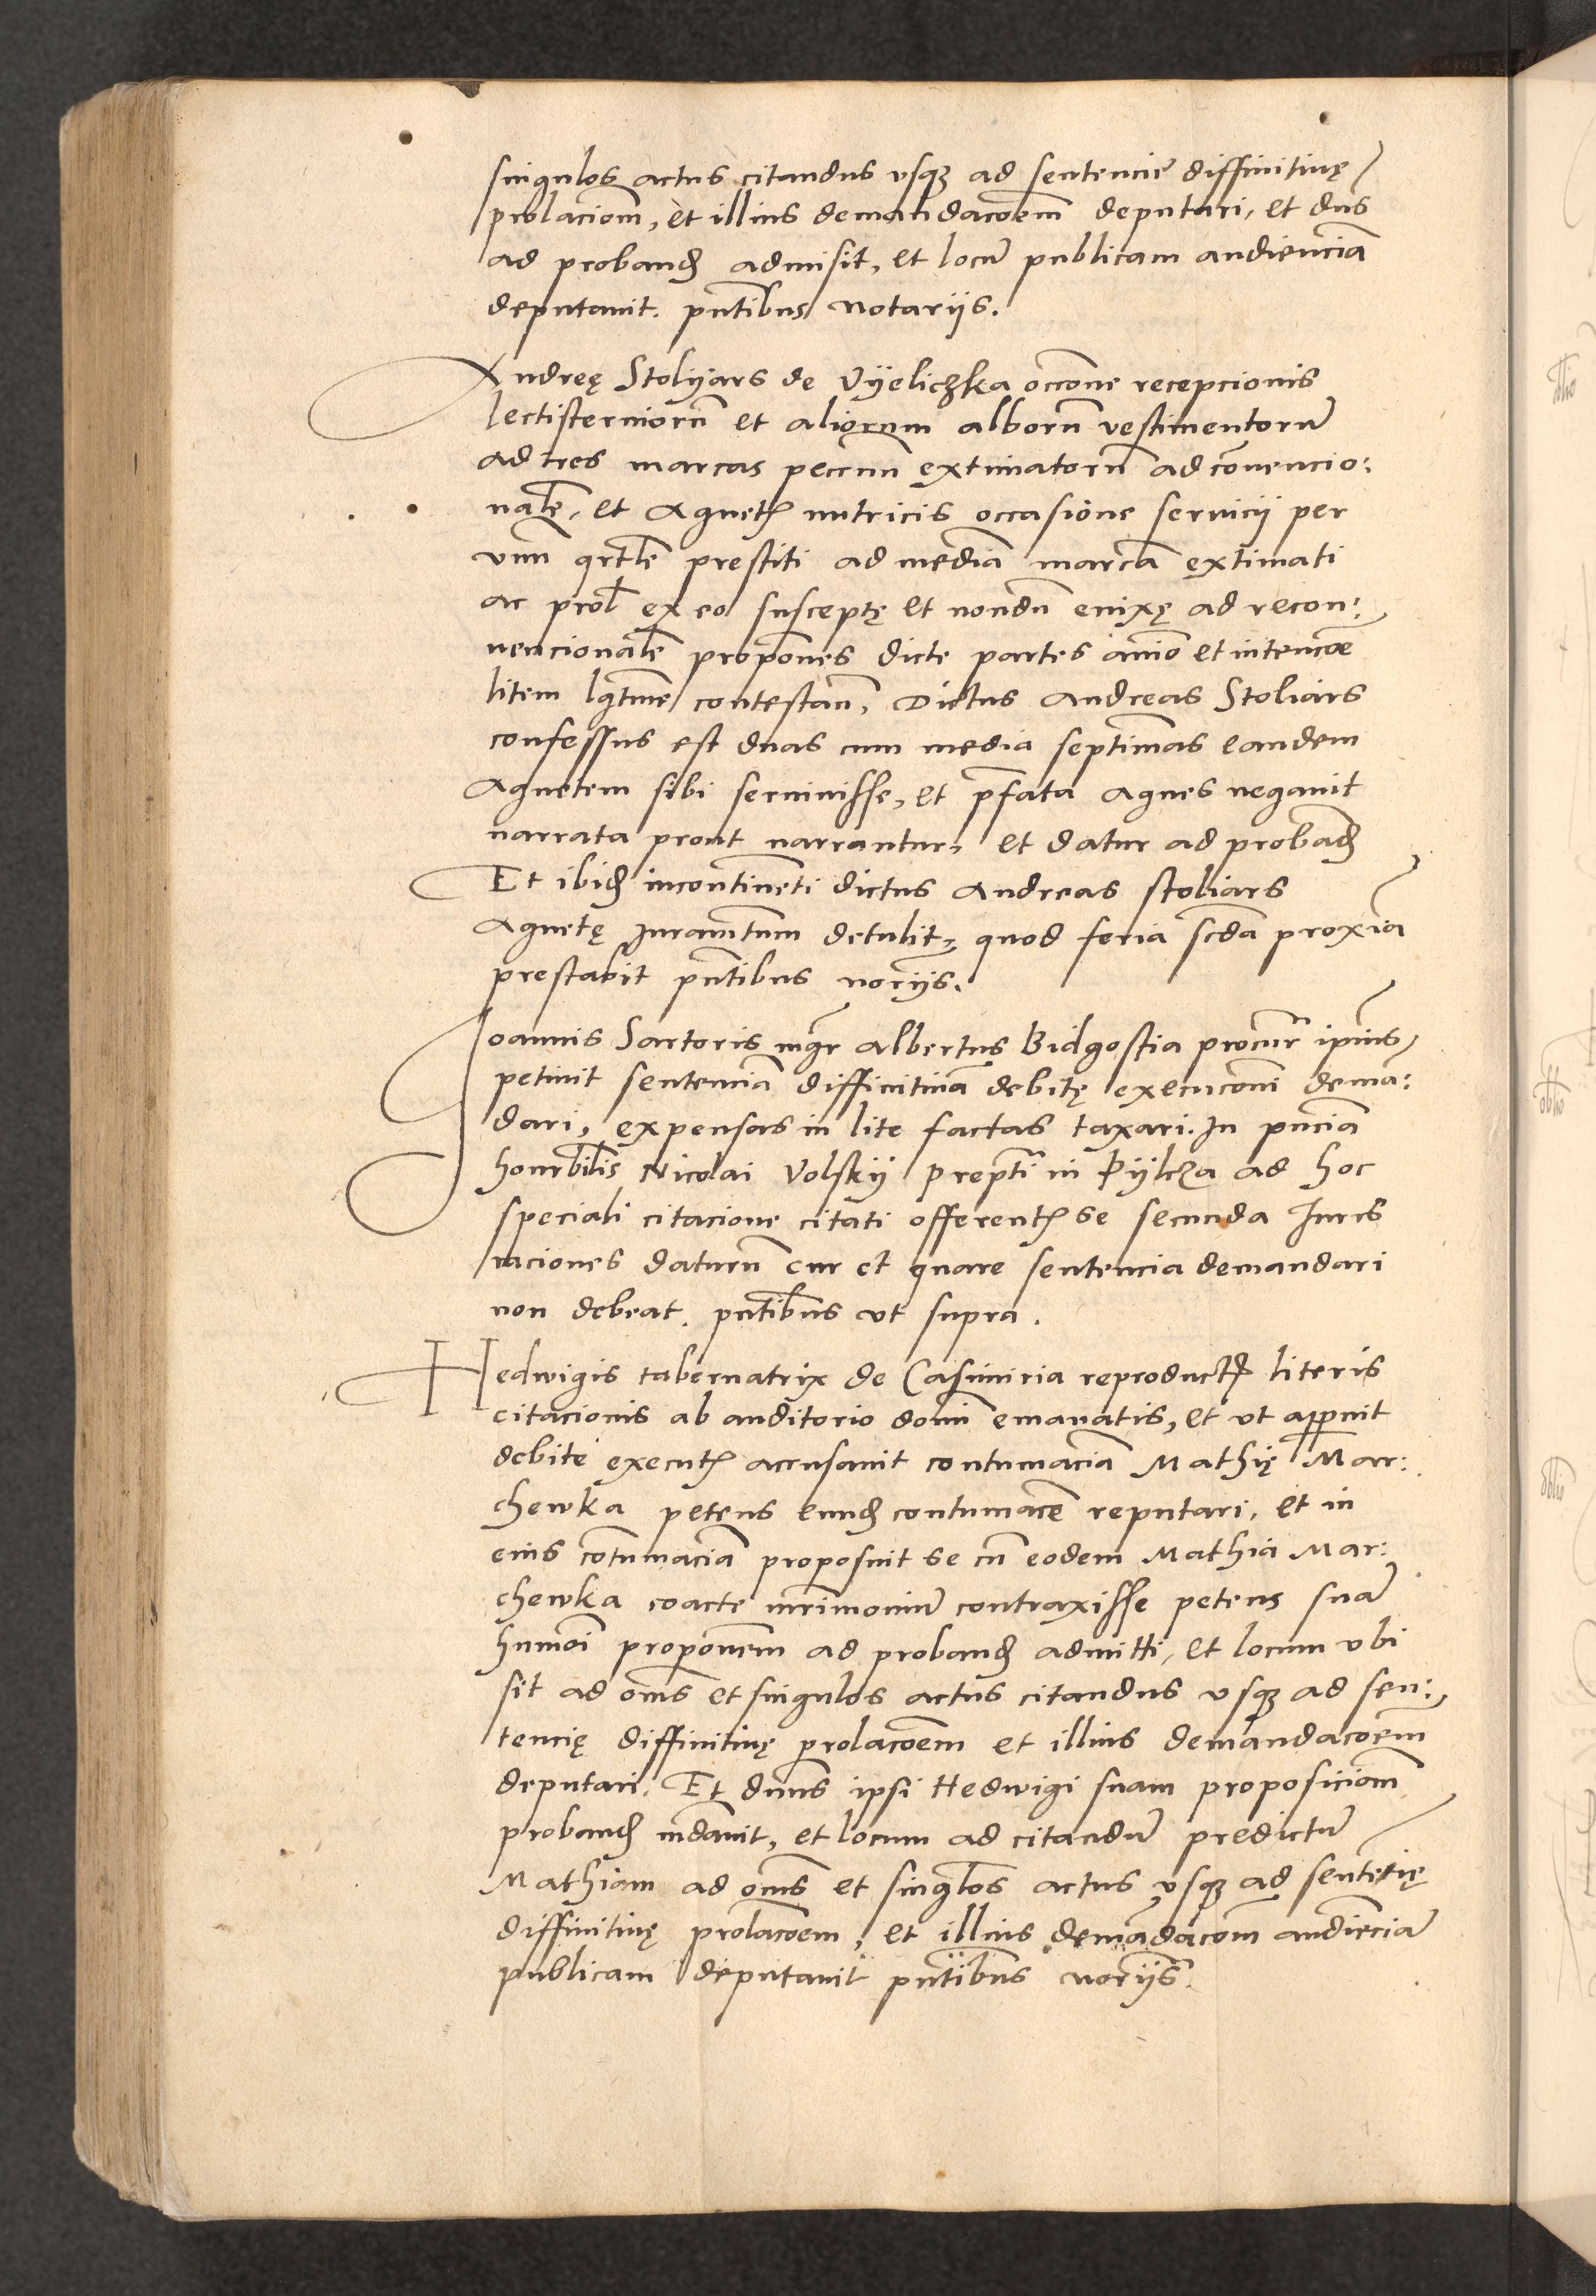 singulos actus citandus vsqꝫ ad sentencię diffinitiuę
prolaciom̄, et illius demandacoēm deputari, et dn̄s
ad probanđ admisit, et locū publicam audienciā
deputauit. pn̄tibus notariis.
Andreę Stolyars de Vyelichka occōne recepcionis
lectisterniorū et aliorum alborū vestimentorū
ad tres marcas peccun̄ extimatorū ad cōuencio:
nalē, et Agnetꝭ nutricis occasione seruicij per
vnū qrtlē prestiti ad mediā marcā extimati
ac prol̄ ex eo susceptę et nondū enixę ad recon:
uencionalē propōnes dicte partes aīo et intencōe
litem lgtīme contestan̄, Dictus Andreas Stoliars
confessus est duas cum media septīmas eandem
Agnetem sibi seruiuisse, et p̄fata Agnes negauit
narrata prout narrantur, et datur ad probanđ
Et ibiđ incontinēti dictus Andreas stoliars
Agnetę Iuramtum detulit, quod feria scđa proxīa
prestabit pn̄tibus norijs.
Joannis Sartoris mgr̄ Albertus Bidgostia procur̄ ipius
petiuit sentenciā diffinitiuā debitę execucōni demā:
dari, expensas in lite factas taxari. In pn̄ciā
honrbīlis Nicolai Volskij prepti in Pylcza ad hoc
speciali citacione citati offerentꝭ se secunda Iuris
raciones daturū cur et quare sentencia demandari
non debeat. pn̄tibus vt supra.
Hedwigis tabernatrix de Casimiria reproductꝭ literis
citacionis ab auditorio domī emanatis, et vt apparuit
debite executꝭ accusauit contumaciā Mathię Mar:
chewka petens eunđ contumacē reputari, et in
eius cōtumaciā proposuit se cū eodem Mathia Mar:
chewka coacte mrīmoniū contraxisse petens suā
humōi propōnem ad probanđ admitti, et locum vbi
sit ad oms̄ et singulos actus citandus vsqꝫ ad sen:
tencię diffinitiuę prolacōem et illius demandacoēm
deputari. Et dnūs ipsi Hedwigi suam proposiciom̄
probanđ mdauit, et locum ad citandū predictū
Mathiam ad oms̄ et singlos actus vsqꝫ ad sentēcię
diffinitiuę prolacoēm, et illius demādacom̄ audienciā
publicam deputauit pn̄tibus norijs.